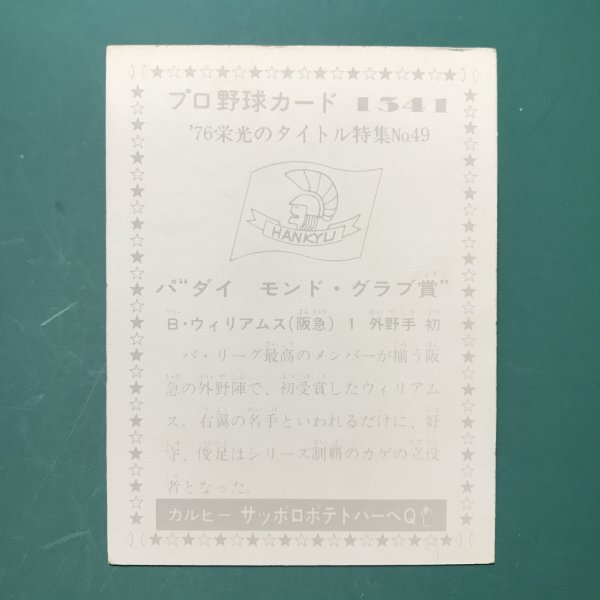 プロ野球カード 1341
'76栄光のタイトル特集No.49
HANKYU
パ“ダイ モンド・グラブ賞”
B・ウィリアムス(阪急) 1 外野手 初
パ・リーグ最高のメンバーが揃う阪
急の外野陣で、初受賞したウィリアム
ス。右翼の名手といわれるだけに、好
守、俊足はシリーズ制覇のカゲの立役
者となった。
カルビー サッポロポテトバーベQあじ